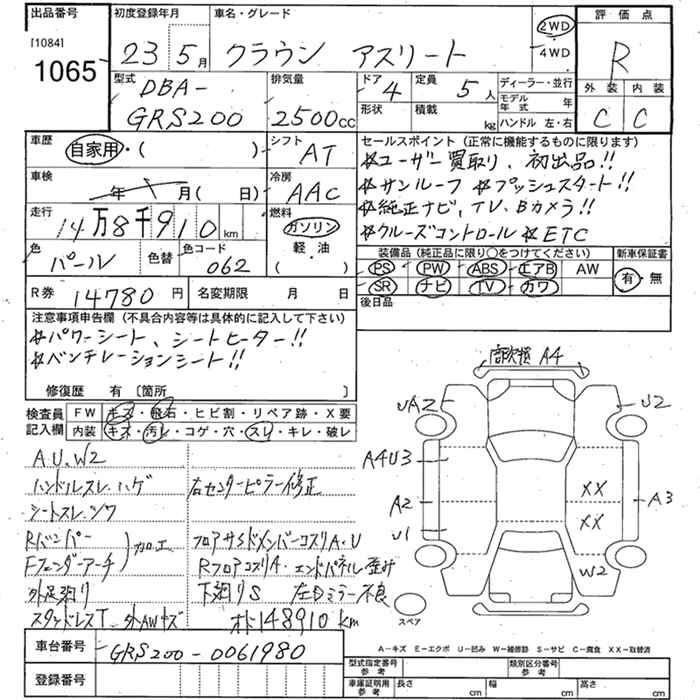 出品番号 初度登録年月 車名・グレード 評価点
[1084] 1065 23 5月 クラウン アスリート 2WD 4WD R
型式 排気量 ドア 定員 ディーラー・並行 外装 内装
DBA- GRS200 2500cc 4 5人 モデル年式 年 C C
形状 積載 kg ハンドル 左・右
車歴 自家用・( ) シフト AT
セールスポイント(正常に機能するものに限ります)
☆ユーザー買取り、初出品!!
車検 年 月( 日) 冷房 AAC
☆サンルーフ ☆プッシュスタート!!
☆純正ナビ,TV,Bカメラ!!
走行 14万8千910km 燃料 ガソリン 軽・油 ( )
☆クルーズコントロール ☆ETC
色 パール 色替 色コード 062
装備品(純正品に限り○をつけてください) 新車保証書
PS PW ABS エアB AW 有・無
SR ナビ TV カワ
R券 14780円 名変期限 月 日
後日品
注意事項申告欄(不具合内容等は具体的に記入して下さい)
☆パワーシート、シートヒーター!!
☆ベンチレーションシート!!
修復歴 有 [箇所 ]
検査員記入欄 FW キズ・飛石・ヒビ割・リペア跡・X要
内装 キズ・汚レ・コゲ・穴・スレ・キレ・破レ
A4
UA2 U2
A4U3
A2 XX A3
U1 XX
W2
スペア
A.U.W2
ハンドルスレ.ハゲ 右センターピラー修正
シートスレ.シワ
Rバンパー
Fフェンダーアーチ 加工
フロアサイドメンバーコスリA・U
Rフロアコスリ4.エンドパネル歪み
外足廻り 下廻りS 左Dミラー不良
スタッドレスT.外AWキズ オド148910km
A-キズ E-エクボ U-凹み W-補修跡 S-サビ C-腐食 XX-取替済
車台番号 GRS200-0061980
型式指定番号 参考 類別区分番号 参考
登録番号
車庫証明用 参考 長さ cm 幅 cm 高さ cm